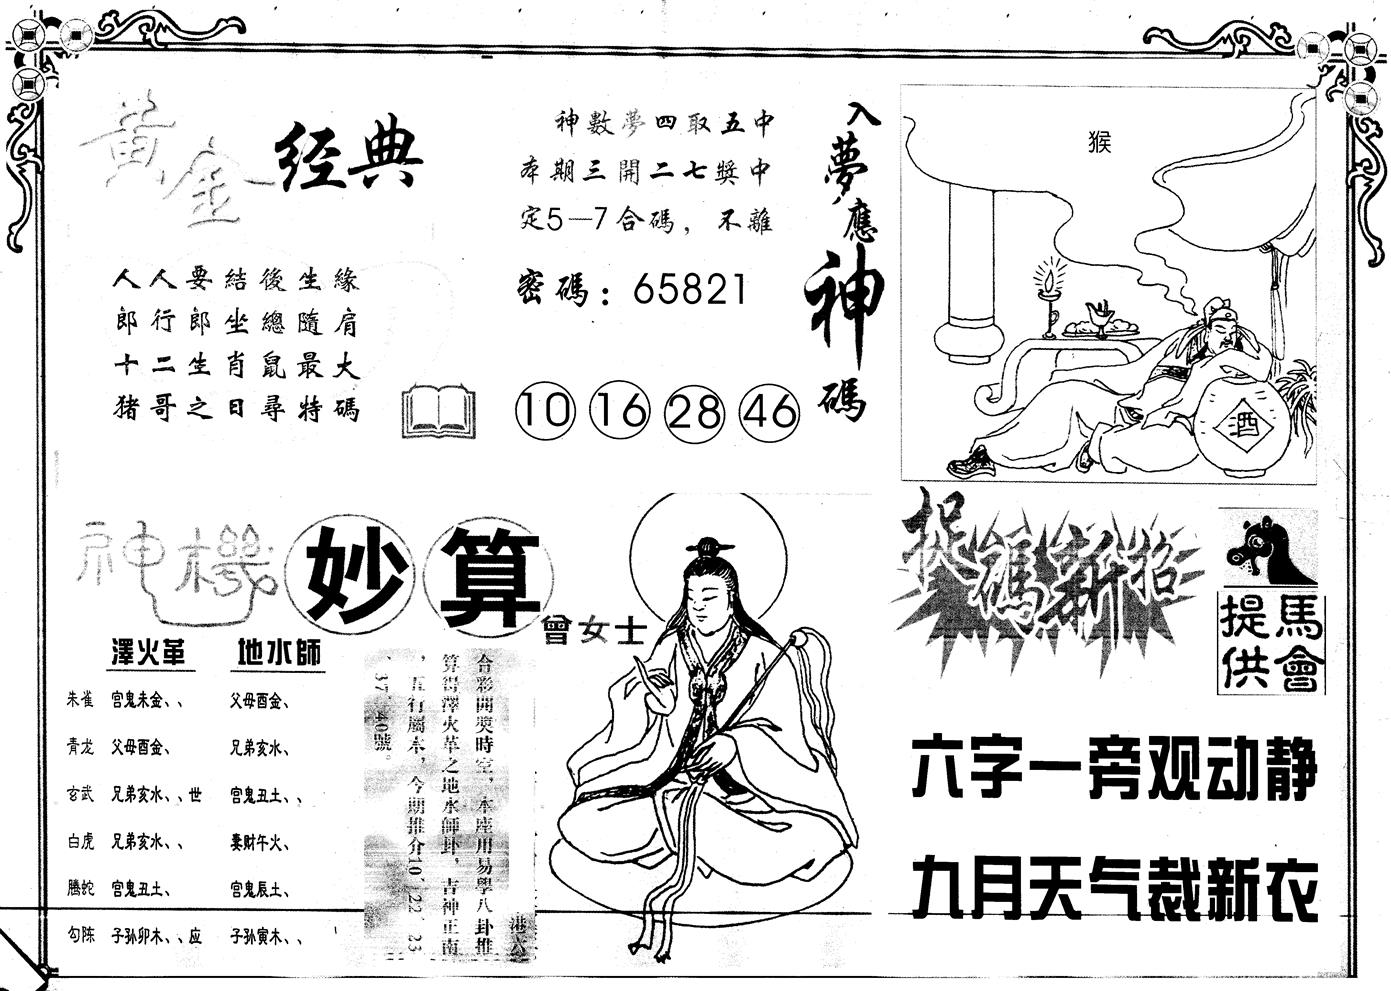 黃金经典
人人要結後生緣
郎行郎坐總隨肩
十二生肖鼠最大
猪哥之日尋特碼
神數夢四取五中
本期三開二七獎中
定5—7合碼，不離
密碼：65821
10 16 28 46
入夢應神碼
猴
酒
神機妙算
曾女士
澤火革 地水師
朱雀 宫鬼未金、、 父母酉金、
青龙 父母酉金、 兄弟亥水、
玄武 兄弟亥水、、世 宫鬼丑土、、
白虎 兄弟亥水、、 妻財午火、
騰蛇 宫鬼丑土、 宫鬼辰土、
勾陈 子孙卯木、、应 子孙寅木、、
港六
合彩開奬時空，本座用易學八卦推
算得澤火革之地水師卦，吉神正南
，五行屬木，今期推介10、22、23
、37、40號。
捉碼新招
馬會
提供
六字一旁观动静
九月天气裁新衣